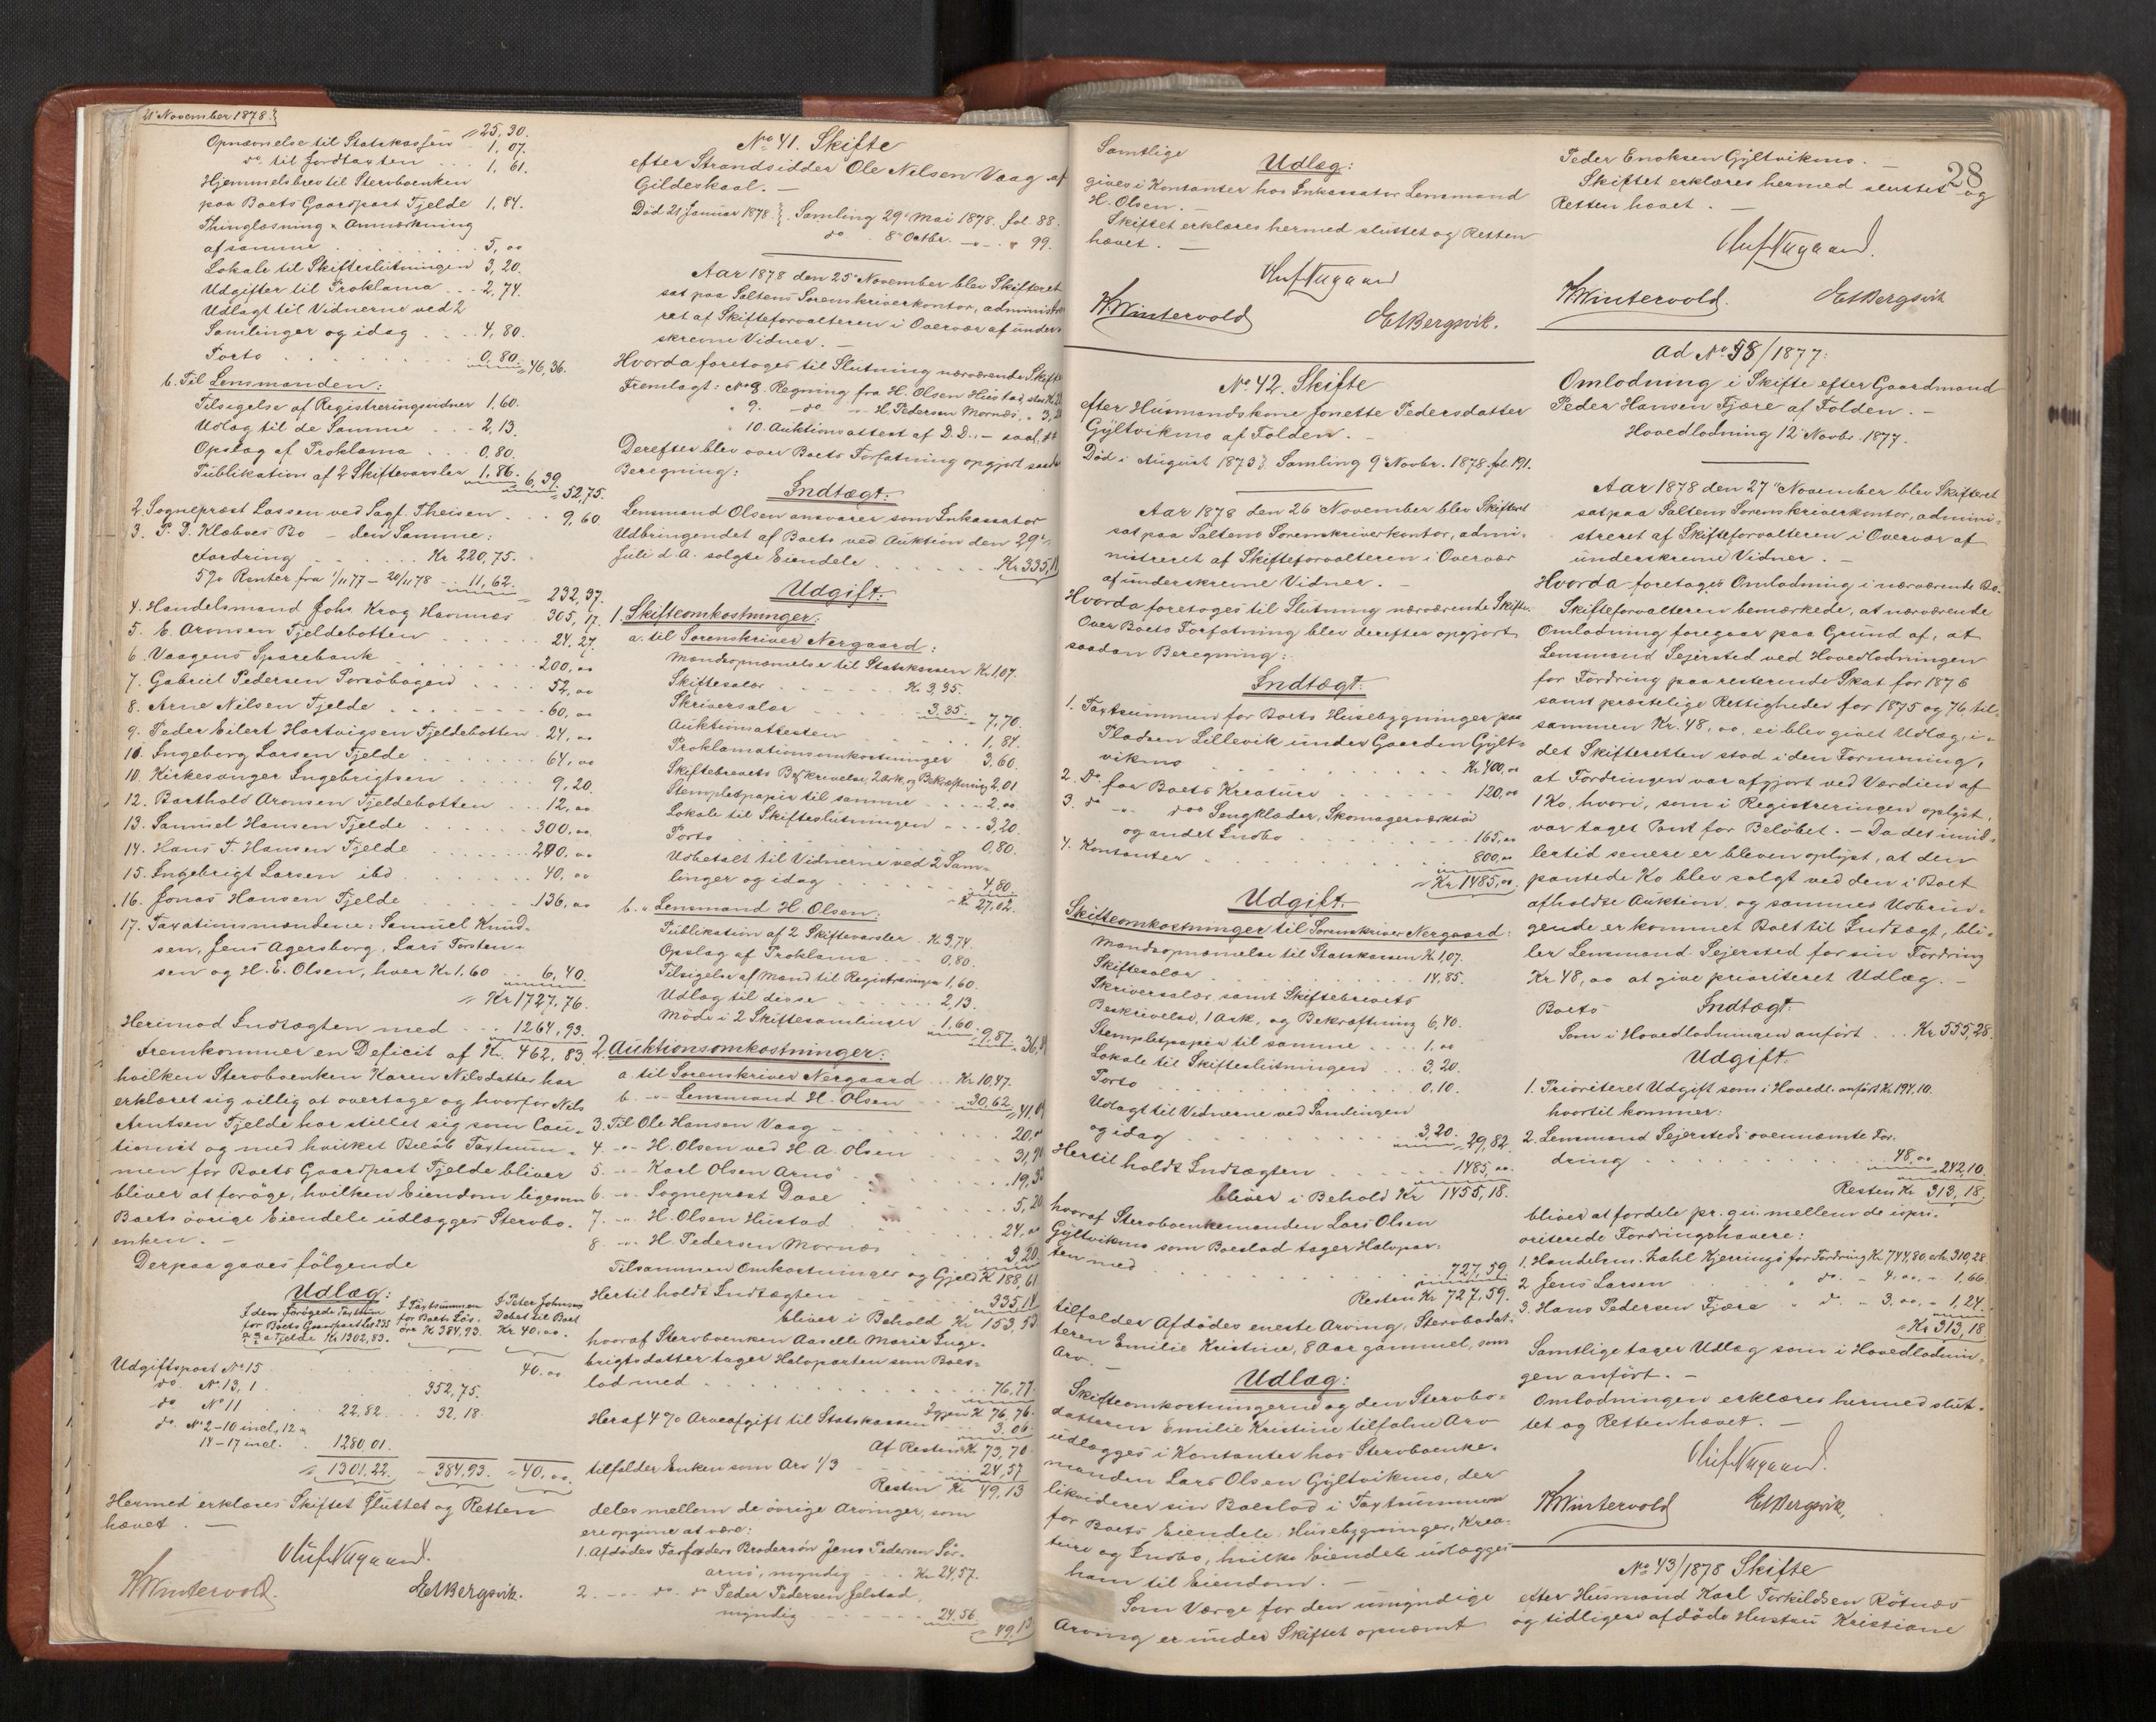 21 November 1878.
25,30.
Opnævnelse til Statskassen 1,07.
do. til Jordtaxten . . . 1,61.
Hjemmelsbrev til Stervboenken
paa Boets Gaardpart Fjelde 1,84.
Thinglæsning & Anmærkning
af samme . . . 5,00
Lokale til Skifteslutningen 3,20.
Udgifter til Proklama . . . 2,74.
Udlagt til Vidnerne ved 2
Samlinger og idag . . . 4,80.
Porto . . . 0,80. 46,36.
b. Til Lensmanden:
Tilsigelse af Registreringsvidner 1,60.
Udlæg til de Samme . . . 2,13.
Opslag af Proklama . . . 0,80.
Publikation af 2 Skiftevarsler 1,86. 6,39.
52,75.
2. Sogneprest Lassen ved Sagf. Theisen . . 9,60
3. P. D. Klæboes Bo – den Samme:
Fordring . . . Kr 220,75.
5% Renter fra 1/11 77 – 20/11 78 . . 11,62.
232,37.
4. Handelsmand Johs Krog Havnnes 305,17.
5. E. Aronsen Fjeldebotten . . . 24,27.
6. Vaagens Sparebank . . . 200,00
7. Gabriel Pedersen Porsöbogen . . . 52,00
8. Arne Nilsen Fjelde . . . 60,00
9. Peder Eilert Hartvigsen Fjeldebotten . 24,00
10. Ingeborg Larsen Fjelde . . . 64,00
10. Kirkesanger Ingebrigtsen . . . 9,20.
12. Barthold Aronsen Fjeldebotten . . . 12,00
13. Samuel Hansen Fjelde . . . 300,00.
14. Hans T. Hansen Fjelde . . . 200,00
15. Ingebrigt Larsen ibd . . . 40,00
16. Jonas Hansen Fjelde . . . 136,00
17. Taxationsmændene: Samuel Knud-
sen, Jens Agersborg, Lars Torsten-
sen og H. E. Olsen, hver Kr 1,60 . . 6,40.
Kr 1727,76.
Herimod Indtægten med . . . 1264,93.
Fremkommer en Deficit af Kr. 462,83
hvilken Stervboenken Karen Nilsdatter har
erklæret sig villig at overtage og hvorfor Nils
Arntsen Fjelde har stillet sig som Cau-
tionist og med hvilket Beløb Taxtsum-
men for Boets Gaardpart Fjelde bliver
bliver at forøge, hvilken Eiendom ligesom
Boets øvrige Eiendele udlægges Stervbo-
enken. –
Derpaa gaves følgende
Udlæg:
I den Forøgede Taxtsum for Boets Gaardpart Fjelde Kr 1302,83.
I Taxtsummen for Boets Løs-øre Kr 384,93.
I Peter Johnsens Debet til Boet Kr. 40,00.
Udgiftspost No 15 . . . 40,00
do. No 13, 1 . . . 352,75.
do No 11 . . . 22,82 . . . 32,18.
do. No 2–10 incl., 12 &
14–17 incl. . 1280,01.
1301,22. 384,93. 40,00
Hermed erklæres Skiftet sluttet og Retten
hævet. –
Oluf Nergaard.
K Wintervold. E A Bergsvik.
No 41. Skifte
efter Strandsidder Ole Nilsen Vaag af
Gildeskaal. –
Død 21 Januar 1878. Samling 29 Mai 1878. fol. 88.
do . 8 Octbr. – „ – . „ 99.
Aar 1878 den 25 November blev Skifteret
sat paa Saltens Sorenskriverkontor, administre
ret af Skifteforvalteren i Overvær af under-
skrevne Vidner. –
Hvorda foretoges til Slutning nærværende Skifte
Fremlagt: No 8. Regning fra H. Olsen Hustad,
„ 9. – do – „ – H. Pedersen Mornæs, „ 3,20
„ 10. Auktionsattest af D. D. –
Derefter blev over Boets Forfatning opgjort saadan
Beregning:
Indtægt:
Lensmand Olsen ansvarer som Inkassator
Udbringendet af Boets ved Auktion den 29
Juli d. A. solgte Eiendele . . . Kr 335,14
Udgift:
1. Skifteomkostninger:
a. til Sorenskriver Nergaard:
Mandsopnævnelse til Statskassen Kr 1,07.
Skiftesalær . . . Kr 3,35.
Skriversalær . . . 3,35. 7,70.
Auktionsattesten . . . 1,84.
Proklamationsomkostninger 3,60.
Skiftebrevets Beskrivelse, 2 Ark, og Bekræftning 2,01
Stempletpapir til samme . . . 2,00.
Lokale til Skifteslutningen . . . 3,20.
Porto . . . 0,80.
Udbetalt til Vidnerne ved 2 Sam-
linger og idag . . . 4,80.
Kr 27,02.
b. „ Lensmand H. Olsen:
Publikation af 2 Skiftevarsler . Kr 3,74.
Opslag af Proklama . . . 0,80.
Tilsigelse af Mænd til Registreringen 1,60.
Udlæg til disse . . . 2,13.
Møde i 2 Skiftesamlinger 1,60. 9,87.
2. Auktionsomkostninger:
a. til Sorenskriver Nergaard . . Kr 10,47.
b. „ Lensmand H. Olsen . . . 30,62.
3. Til Ole Hansen Vaag . . . 20,00
4. „ H. Olsen ved H. A. Olsen . . .
5. „ Karl Olsen Arnø . . .
6. „ Sogneprest Daae . . . 5,20
7. „ H. Olsen Hustad . . . 24,00
8. „ H. Pedersen Mornæs . . . 3,20.
Tilsammen Omkostninger og Gjæld Kr 188,61
Hertil holdt Indtægten . . . 335,14
bliver i Behold Kr 153,53
hvoraf Stervboenken Aaselle Marie Inge-
brigtsdatter tager Halvparten som Boes-
lod med . . . 76,77.
Igjen Kr 76,76.
Heraf 4% Arveafgift til Statskassen 3,06.
Af Resten Kr 73,70.
tilfalder Enken som Arv 1/3 . . . 24,57
Resten Kr 49,13
deles mellem de øvrige Arvinger, som
ere opgivne at være:
1. Afdødes Farfaders Brodersøn Jens Pedersen Sør-
arnø, myndig . . . Kr 24,57.
2. – „ – do. do Peder Pedersen Jelstad,
myndig . . . 24,56.
49,13
28
Samtlige
Udlæg:
gives i Kontanter hos Inkassator Lensmand
H. Olsen. –
Skiftet erklæres hermed sluttet og Retten
hævet. –
Oluf Nergaard
K Wintervold E A Bergsvik.
No 42. Skifte
efter Husmandskone Jonette Pedersdatter
Gyltvikmo af Folden. –
Død i August 1873. Samling 9 Novbr. 1878. fol. 191.
Aar 1878 den 26 November blev Skifteret
sat paa Saltens Sorenskriverkontor, admi-
nistreret af Skifteforvalteren i Overvær
af underskrevne Vidner. –
Hvorda foretoges til Slutning nærværende Skifte.
Over Boets Forfatning blev derefter opgjort
saadan Beregning:
Indtægt:
1. Taxtsummen for Boets Husebygninger paa
Pladsen Lillevik under Gaarden Gylt-
vikmo . . . Kr 400,00
2. Do. for Boets Kreature . . . 120,00
3. do „ doo Sengklæder, Skomagerværktøi
og andet Indbo . . . 165,00
4. Kontanter . . . 800,00
Kr 1485,00.
Udgift.
Skifteomkostninger til Sorenskriver Nergaard:
Mandsopnævnelse til Statskassen Kr 1,07.
Skiftesalær . . . 14,85.
Skriversalær, samt Skiftebrevets
Beskrivelse, 1 Ark, og Bekræftning 6,40.
Stempletpapir til samme . . . 1,00
Lokale til Skifteslutningen . . . 3,20.
Porto . . . 0,10.
Udlagt til Vidnerne ved Samlingen
og idag . . . 3,20. 29,82.
Hertil holdt Indtægten . . . 1485,00.
bliver i Behold Kr 1455,18.
hvoraf Stervboenkemanden Lars Olsen
Gyltvikmo som Boeslod tager Halvpar-
ten med . . . 727,59.
Resten Kr 727,59.
tilfalder Afdødes eneste Arving, Stervbodat-
teren Emilie Kristine, 8 Aar gammel, som
Arv. –
Udlæg:
Skifteomkostningerne og den Stervbo-
datteren Emilie Kristine tilfaldne Arv
udlægges i Kontanter hos Stervboenke-
manden Lars Olsen Gyltvikmo, der
likviderer sin Boeslod i Taxtsummen
for Boets Eiendele: Husebygninger, Krea-
ture og Indbo, hvilke Eiendele udlægges
ham til Eiendom. –
Som Værge for den umyndige
Arving er under Skiftet opnævnt
Peder Enoksen Gyltvikmo. –
Skiftet erklæres hermed sluttet og
Retten hævet. –
Oluf Nergaard.
K Wintervold. E A Bergsvik
Ad No 58/1877:
Omlodning i Skifte efter Gaardmand
Peder Hansen Fjære af Folden. –
Hovedlodning 12 Novbr. 1877.
Aar 1878 den 27 November blev Skifteret
sat paa Saltens Sorenskriverkontor, admini-
streret af Skifteforvalteren i Overvær af
underskrevne Vidner. –
Hvorda foretoges Omlodning i nærværende Bo.
Skifteforvalteren bemærkede, at nærværende
Omlodning foregaar paa Grund af, at
Lensmand Sejersted ved Hovedlodningen
for Fordring paa resterende Skat for 1876
samt præstelige Rettigheder for 1875 og 76, til-
sammen Kr. 48,00, ei blev givet Udlæg, i-
det Skifteretten stod i den Formening,
at Fordringen var afgjort ved Værdien af
1 Ko, hvori, som i Registreringen oplyst,
var taget Pant for Beløbet. – Da det imid-
lertid senere er bleven oplyst, at den
pantede Ko blev solgt ved den i Boet
afholdte Auktion, og sammes Udbrin-
gende er kommet Boet til Indtægt, bli-
ler Lensmand Sejersted for sin Fordring
Kr 48,00 at give prioriteret Udlæg. –
Boets Indtægt:
Som i Hovedlodningen anført . . . Kr. 555,28.
Udgift:
1. Prioriteret Udgift som i Hovedl. anført Kr 194,10.
hvortil kommer:
2. Lensmand Sejersteds ovennævnte For-
dring . . . 48,00 242,10.
Resten Kr 313,18.
bliver at fordele pr. qv. mellem de upri-
oriterede Fordringshavere:
1. Handelsm. Zahl Kjerringø for Fordring Kr 744,80, erh. 310,28
2 Jens Larsen . . . „ do. „ 4,00, „ 1,66.
3. Hans Pedersen Fjære „ do. „ 3,00, „ 1,24.
Kr 313,18
Samtlige tager Udlæg som i Hovedlodnin-
gen anført. –
Omlodningen erklæres hermed slut-
tet og Retten hævet. –
Oluf Nergaard.
K Wintervold E A Bergsvik,
No 43/1878 Skifte
efter Husmand Karl Torkildsen Rötnæs
og tidligere afdöde Hustru Kristiane